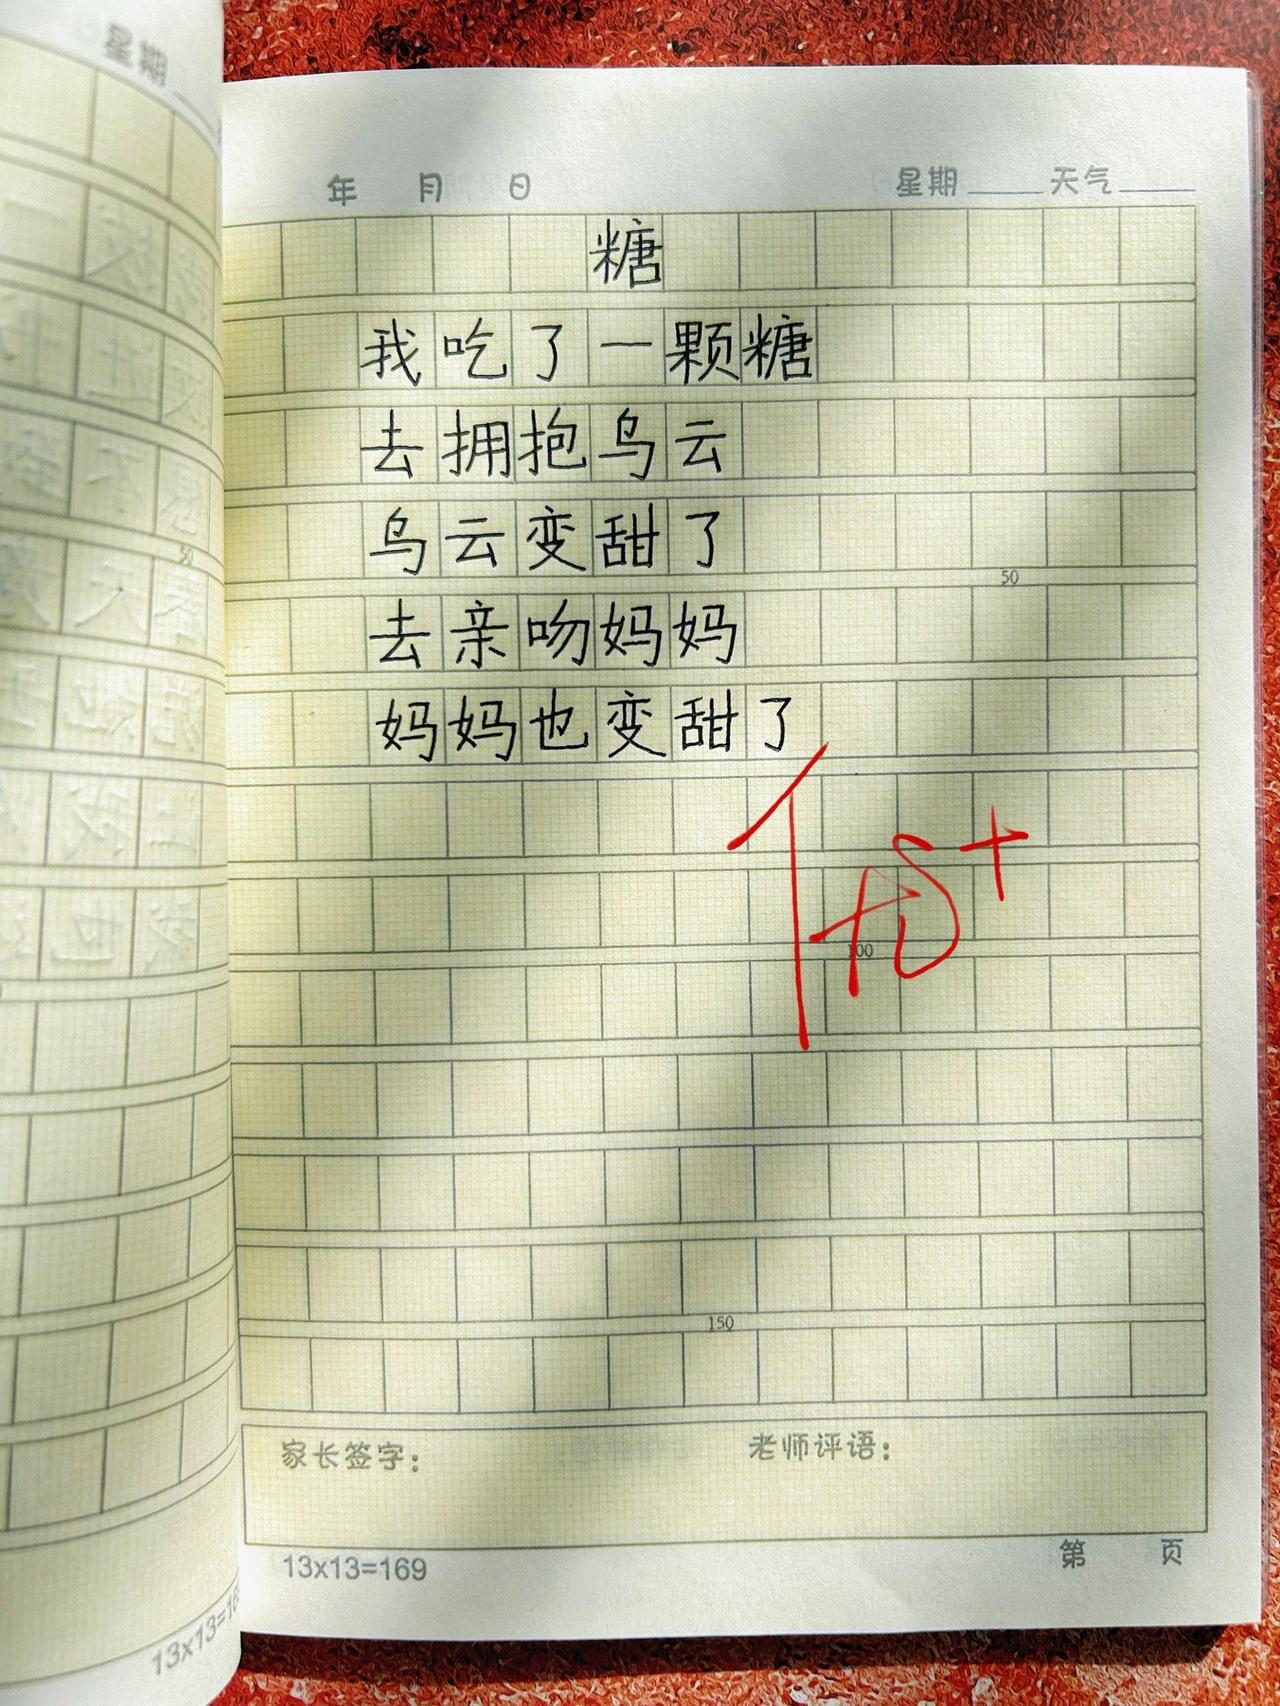 星期
年 月 日 星期 天气
糖
我吃了一颗糖
去拥抱乌云
乌云变甜了
50
去亲吻妈妈
妈妈也变甜了
优+
100
150
家长签字： 老师评语：
13x13=169 第 页
50
13x13=16